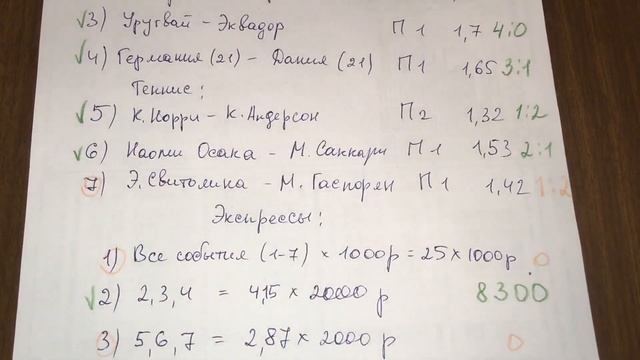 √3) Уругвай - Эквадор П 1 1,7 4:0
√4) Германия (21) - Дания (21) П 1 1,65 3:1
Теннис:
√5) К. Норри - К. Андерсон П 2 1,32 1:2
√6) Наоми Осака - М. Саккари П 1 1,53 2:1
7) Э. Свитолина - М. Гаспарян П 1 1,42 1:2
Экспрессы:
1) Все события (1-7) × 1000 р = 25 × 1000 р. 0
√2) 2, 3, 4 = 4,15 × 2000 р 8300
3) 5, 6, 7 = 2,87 × 2000 р 0